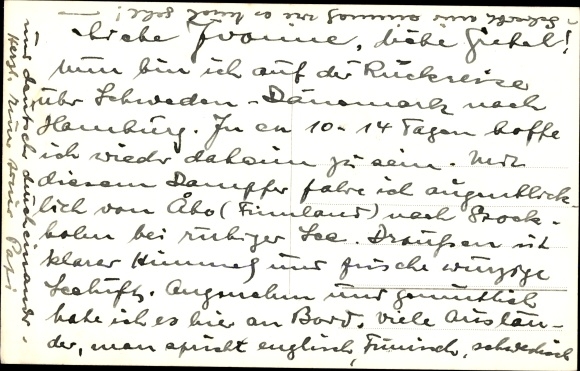 Liebe Yvonne, liebe Gretel!
Nun bin ich auf der Rückreise
über Schweden - Dänemark nach
Hamburg. In ca 10-14 Tagen hoffe
ich wieder daheim zu sein. Mit
diesem Dampfer fahre ich augenblick-
lich von Åbo (Finnland) nach Stock-
holm bei ruhiger See. Draußen ist
klarer Himmel und frische würzige
Seeluft. Angenehm und gemütlich
habe ich es hier an Bord. Viele Auslän-
der, man spricht englisch, Finnisch, schwedisch
und deutsch durcheinander.
Herzl. Euer Papi